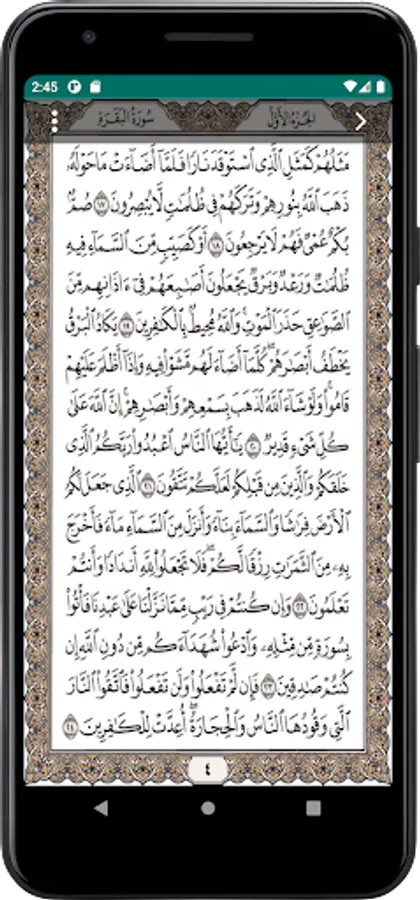 2:45
سُورَةُ البَقَرَةِ
الجُزْءُ الأَوَّلُ
مَثَلُهُمْ كَمَثَلِ ٱلَّذِى ٱسْتَوْقَدَ نَارًا فَلَمَّآ أَضَآءَتْ مَا حَوْلَهُۥ
ذَهَبَ ٱللَّهُ بِنُورِهِمْ وَتَرَكَهُمْ فِى ظُلُمَٰتٍ لَّا يُبْصِرُونَ ١٧ صُمٌّۢ
بُكْمٌ عُمْىٌ فَهُمْ لَا يَرْجِعُونَ ١٨ أَوْ كَصَيِّبٍ مِّنَ ٱلسَّمَآءِ فِيهِ
ظُلُمَٰتٌ وَرَعْدٌ وَبَرْقٌ يَجْعَلُونَ أَصَٰبِعَهُمْ فِىٓ ءَاذَانِهِم مِّنَ
ٱلصَّوَٰعِقِ حَذَرَ ٱلْمَوْتِ ۚ وَٱللَّهُ مُحِيطٌۢ بِٱلْكَٰفِرِينَ ١٩ يَكَادُ ٱلْبَرْقُ
يَخْطَفُ أَبْصَٰرَهُمْ ۖ كُلَّمَآ أَضَآءَ لَهُم مَّشَوْا۟ فِيهِ وَإِذَآ أَظْلَمَ عَلَيْهِمْ
قَامُوا۟ ۚ وَلَوْ شَآءَ ٱللَّهُ لَذَهَبَ بِسَمْعِهِمْ وَأَبْصَٰرِهِمْ ۚ إِنَّ ٱللَّهَ عَلَىٰ
كُلِّ شَىْءٍ قَدِيرٌ ٢٠ يَٰٓأَيُّهَا ٱلنَّاسُ ٱعْبُدُوا۟ رَبَّكُمُ ٱلَّذِى
خَلَقَكُمْ وَٱلَّذِينَ مِن قَبْلِكُمْ لَعَلَّكُمْ تَتَّقُونَ ٢١ ٱلَّذِى جَعَلَ لَكُمُ
ٱلْأَرْضَ فِرَٰشًا وَٱلسَّمَآءَ بِنَآءً وَأَنزَلَ مِنَ ٱلسَّمَآءِ مَآءً فَأَخْرَجَ
بِهِۦ مِنَ ٱلثَّمَرَٰتِ رِزْقًا لَّكُمْ ۖ فَلَا تَجْعَلُوا۟ لِلَّهِ أَندَادًا وَأَنتُمْ
تَعْلَمُونَ ٢٢ وَإِن كُنتُمْ فِى رَيْبٍ مِّمَّا نَزَّلْنَا عَلَىٰ عَبْدِنَا فَأْتُوا۟
بِسُورَةٍ مِّن مِّثْلِهِۦ وَٱدْعُوا۟ شُهَدَآءَكُم مِّن دُونِ ٱللَّهِ إِن
كُنتُمْ صَٰدِقِينَ ٢٣ فَإِن لَّمْ تَفْعَلُوا۟ وَلَن تَفْعَلُوا۟ فَٱتَّقُوا۟ ٱلنَّارَ
ٱلَّتِى وَقُودُهَا ٱلنَّاسُ وَٱلْحِجَارَةُ ۖ أُعِدَّتْ لِلْكَٰفِرِينَ ٢٤
٤